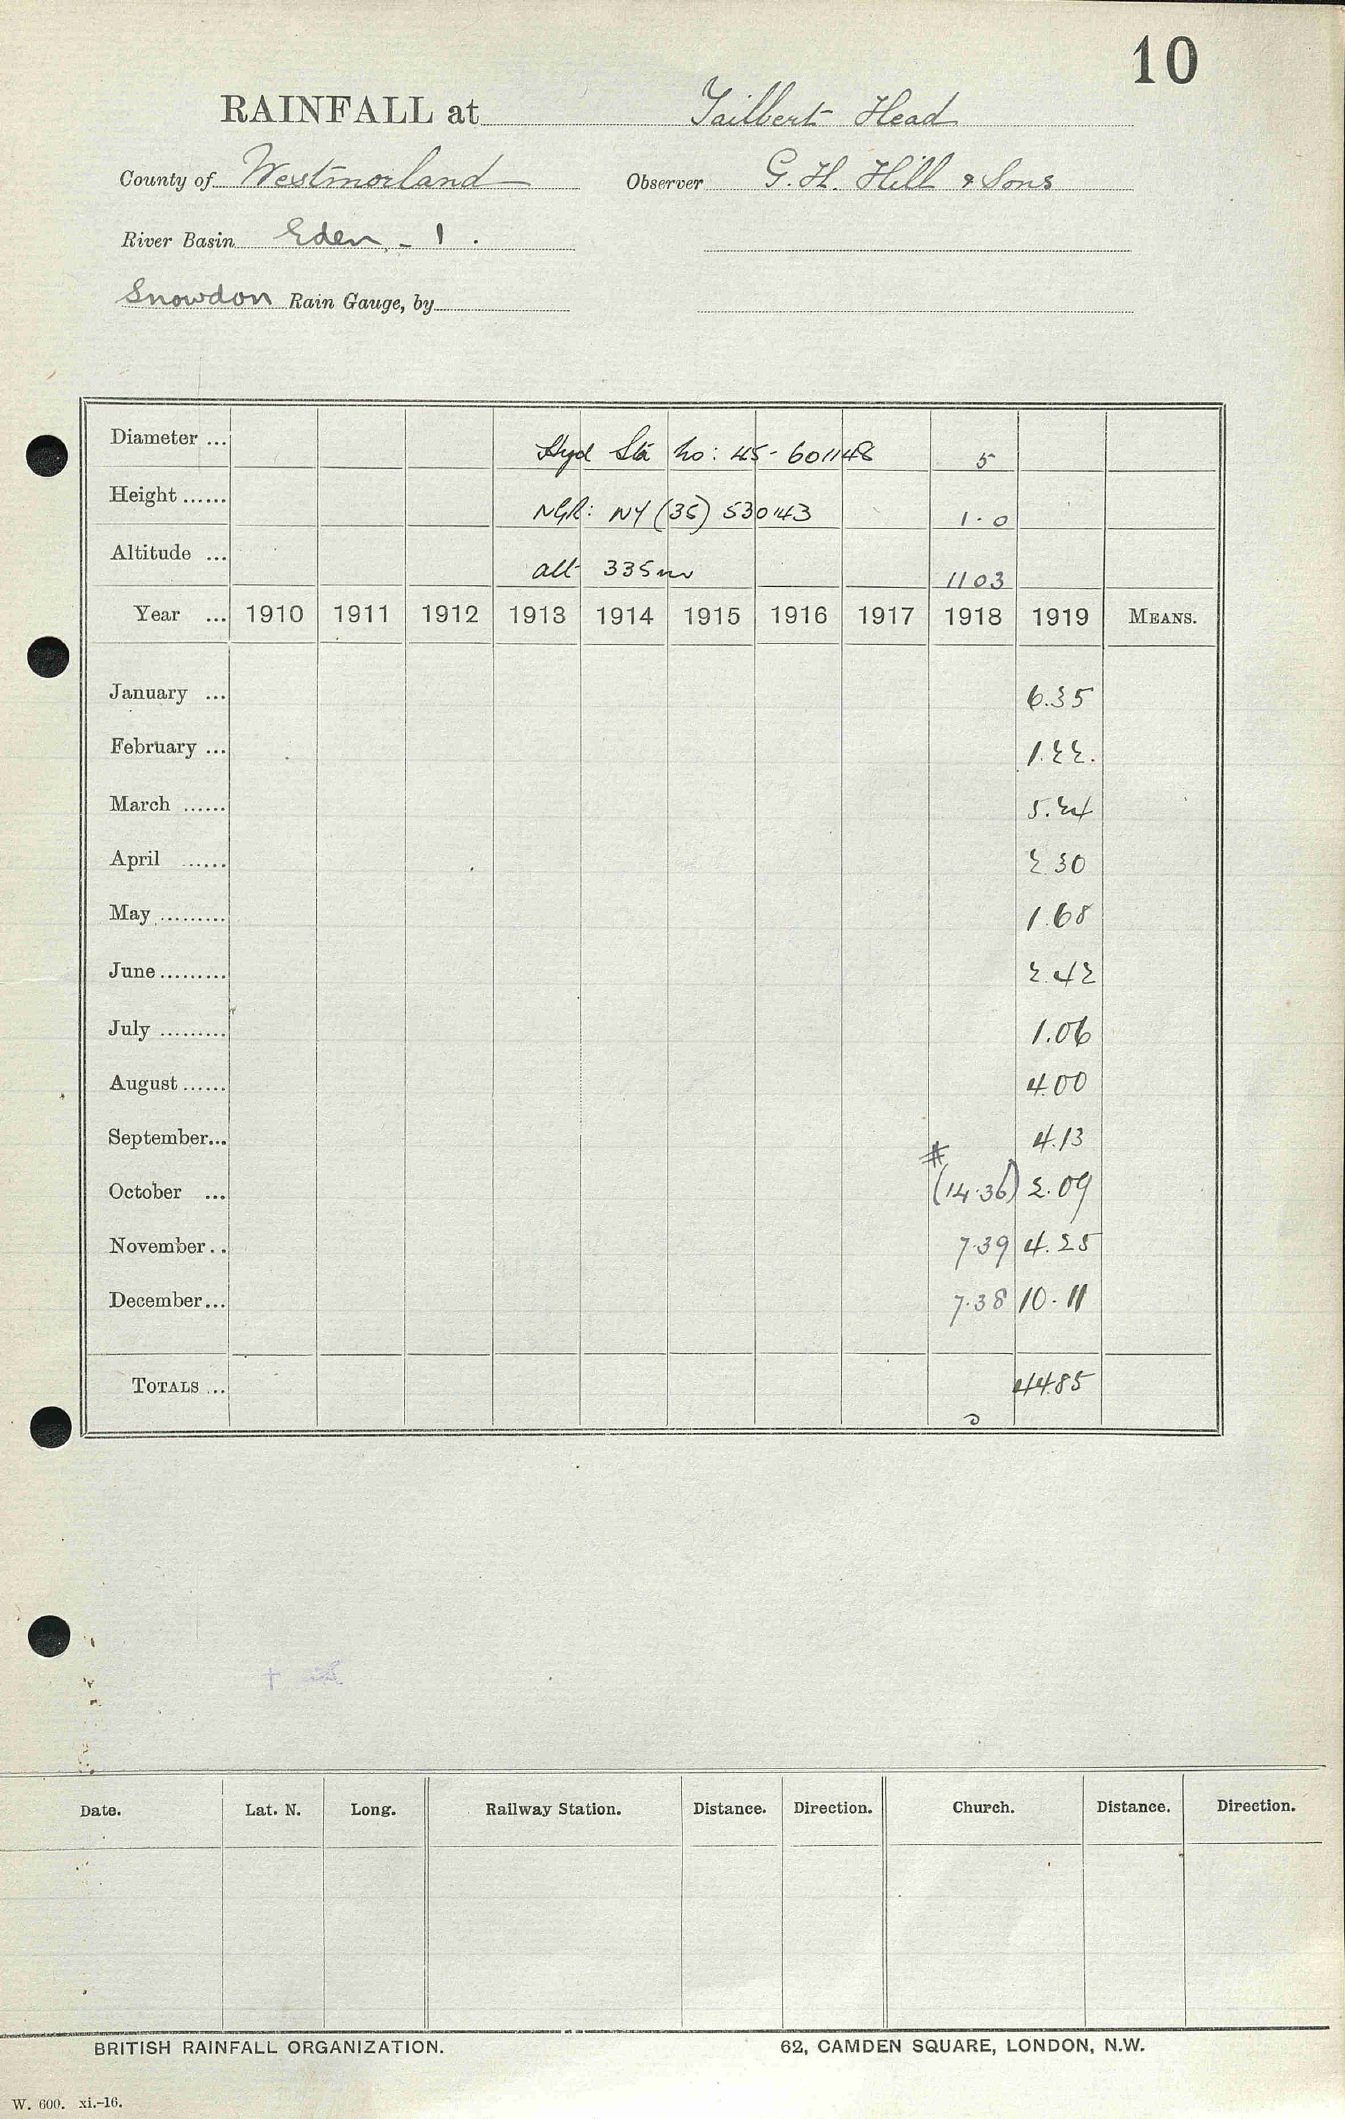 10
RAINFALL at Tailbert Head
County of Westmorland Observer G. H. Hill & Sons
River Basin Eden - 1.
Snowdon Rain Gauge, by
Diameter ... Hyd Sta No: 45-601148 5
Height ...... NGR: NY (35) 530143 1.0
Altitude ... alt 335m 1103
Year ... 1910 1911 1912 1913 1914 1915 1916 1917 1918 1919 MEANS.
January ... 6.35
February ... 1.22.
March ...... 5.24
April ...... 2.30
May ......... 1.68
June ......... 2.42
July ......... 1.06
August ...... 4.00
September... 4.13
#
October ... (14.36) 2.09
November .. 7.39 4.25
December ... 7.38 10.11
TOTALS ... 44.85
Date. Lat. N. Long. Railway Station. Distance. Direction. Church. Distance. Direction.
BRITISH RAINFALL ORGANIZATION. 62, CAMDEN SQUARE, LONDON, N.W.
W. 600. xi.-16.